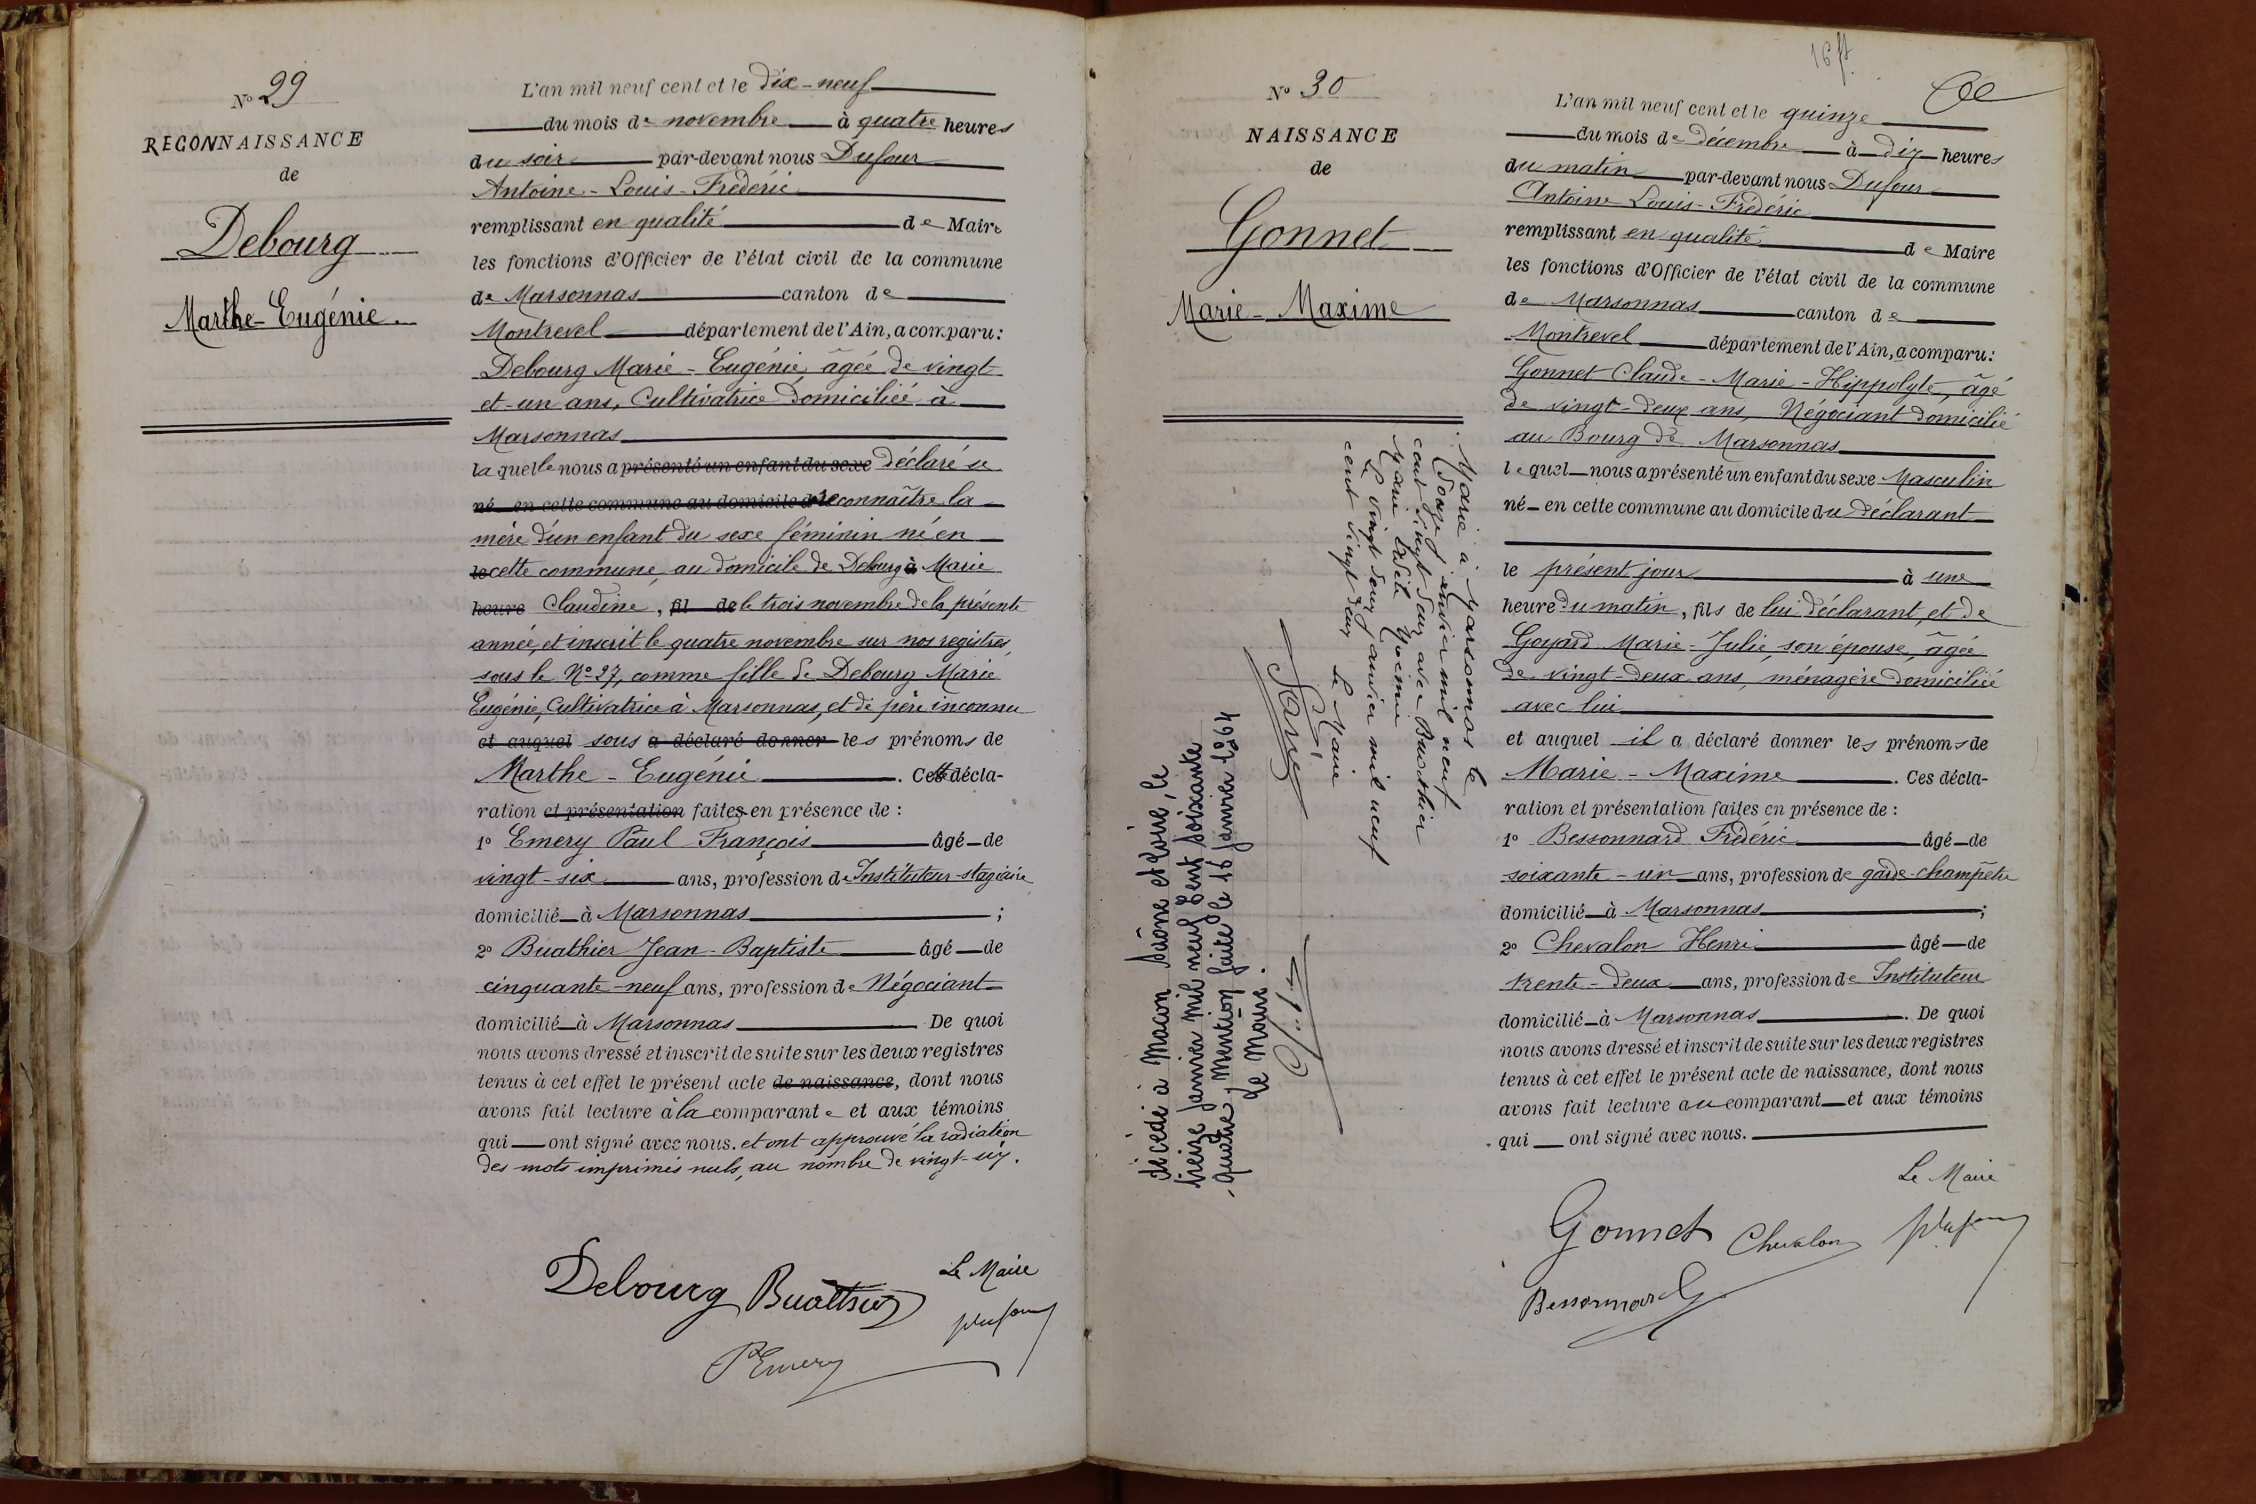 N° 29
RECONNAISSANCE
de
Debourg
Marthe-Eugénie.
L'an mil neuf cent et le dix-neuf
du mois de novembre à quatre heures
du soir par-devant nous Dufour
Antoine-Louis-Frédéric
remplissant en qualité de Maire
les fonctions d'Officier de l'état civil de la commune
de Marsonnas canton de
Montrevel département de l'Ain, a comparu:
Debourg Marie-Eugénie, âgée de vingt
et-un ans, Cultivatrice domiciliée à
Marsonnas
laquelle nous a présenté un enfant du sexe déclaré se
né en cette commune au domicile d reconnaître la
mère d'un enfant du sexe féminin né en
le cette commune, au domicile de Debourg à Marie
heure Claudine, fil de le trois novembre de la présente
année, et inscrit le quatre novembre sur nos registres,
sous le N° 27, comme fille de Debourg Marie
Eugénie, Cultivatrice à Marsonnas, et de père inconnu
et auquel sous a déclaré donner les prénoms de
Marthe-Eugénie. Cette décla-
ration et présentation faites en présence de :
1° Emery Paul François âgé de
vingt-six ans, profession de Instituteur-stagiaire
domicilié à Marsonnas ;
2° Buathier Jean-Baptiste âgé de
cinquante-neuf ans, profession de Négociant
domicilié à Marsonnas De quoi
nous avons dressé et inscrit de suite sur les deux registres
tenus à cet effet le présent acte de naissance, dont nous
avons fait lecture à la comparante et aux témoins
qui ont signé avec nous. et ont approuvé la radiation
des mots imprimés nuls, au nombre de vingt-six.
Le Maire
Debourg Buathier Dufour
P Emery
16 ft
N° 30
NAISSANCE
de
Gonnet
Marie-Maxime
Marié à Marsonnas le
douze janvier mil neuf
cent vingt deux avec Buathier
Marie
Le vingt janvier mil neuf
cent vingt deux Le Maire
Décédé à Macon Saône et Loire, le
treize Janvier mil neuf Cent Soixante
quatre, Mention faite le 16 Janvier 1964
Le Maire.
L'an mil neuf cent et le quinze
du mois de Décembre à dix heures
du matin par-devant nous Dufour
Antoine Louis-Frédéric
remplissant en qualité de Maire
les fonctions d'Officier de l'état civil de la commune
de Marsonnas canton de
Montrevel département de l'Ain, a comparu:
Gonnet Claude-Marie-Hippolyte, âgé
de vingt-deux ans, Négociant domicilié
au Bourg de Marsonnas
lequel nous a présenté un enfant du sexe Masculin
né en cette commune au domicile du déclarant
le présent jour à une
heure du matin, fils de lui déclarant, et de
Goyard Marie-Julie, son épouse, âgée
de vingt-deux ans, ménagère domiciliée
avec lui
et auquel il a déclaré donner les prénoms de
Marie-Maxime. Ces décla-
ration et présentation faites en présence de :
1° Bessonnard Frédéric âgé de
soixante-un ans, profession de garde-champêtre
domicilié à Marsonnas ;
2° Chevalon Henri âgé de
trente-deux ans, profession de Instituteur
domicilié à Marsonnas. De quoi
nous avons dressé et inscrit de suite sur les deux registres
tenus à cet effet le présent acte de naissance, dont nous
avons fait lecture au comparant et aux témoins
qui ont signé avec nous.
Le Maire
Gonnet Chevalon Dufour
Bessonnard